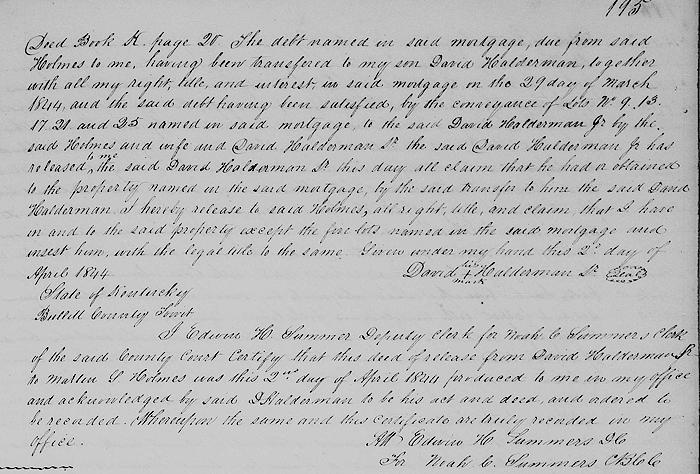 195
Deed Book K. page 20. The debt named in said mortgage, due from said
Holmes to me, having been transferred to my son David Halderman, together
with all my right, title, and interest, in said mortgage on the 29 day of March
1844, and the said debt having been satisfied, by the conveyance of Lots No 9. 13.
17. 21 and 25 named in said mortgage, to the said David Halderman Jr by the
said Holmes and wife and David Halderman Sr. the said David Halderman Jr has
released to me the said David Halderman Sr this day all claim that he had or obtained
to the property named in the said mortgage, by the said transfer to him the said David
Halderman, I hereby release to said Holmes, all right, title, and claim, that I have
in and to the said property except the five lots named in the said mortgage and
invest him, with the legal title to the same. Given under my hand this 2d day of
April 1844 David his + mark Halderman Sr Seal
State of Kentucky
Bullitt County Court
I Edwin H. Summer Deputy Clerk for Noah C. Summers Clerk
of the said County Court Certify that this deed of release from David Halderman Sr
to S Holmes was this 2nd day of April 1844 produced to me in my office
and acknowledged by said D Halderman to be his act and deed, and ordered to
be recorded. Whereupon the same and this certificate are truly recorded in my
office. Att Edwin H. Summers DC
For Noah C. Summers CBCC